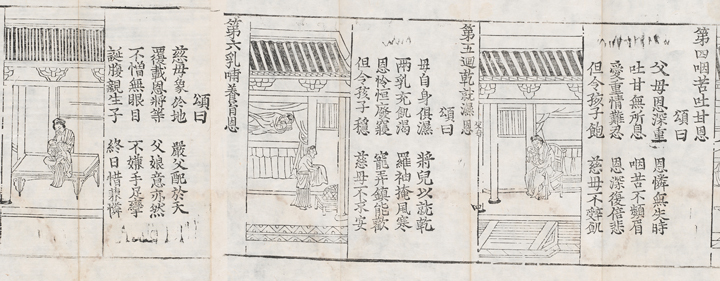 第四咽苦吐甘恩
頌曰
父母恩深重　恩憐無失時
吐甘無所恩　咽苦不顰眉
愛重情難忍　恩深復倍悲
但令孩子飽　慈母不辭飢
第五迴乾就濕恩
頌曰
母自身俱濕　將兒以就乾
兩乳充飢渴　羅袖掩風寒
恩怜恒廢寢　寵弄鎮能歡
但令孩子穩　慈母不求安
第六乳哺養育恩
頌曰
慈母象於地　嚴父配於天
覆載恩將等　父娘意亦然
不憎無眼目　不嫌手足攣
誕腹親生子　終日惜兼憐